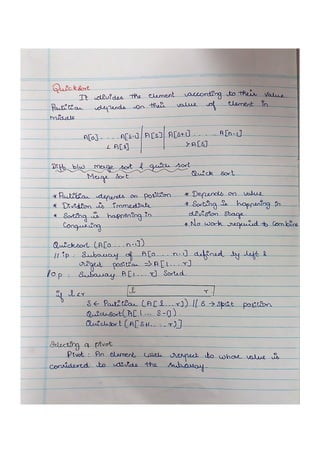 Quicksort
It divides the element according to their value
Partition depends on their value of element in
middle
A[0]......A[s-1] | A[s] | A[s+1].......A[n-1]
< A[s] > A[s]
Diff b/w merge sort & quick sort
Merge sort Quick sort
* Partition depends on position * Depends on value
* Division is immediate * Sorting is happening in
* Sorting is happening in division stage
Conquering * No work required to Combine
Quicksort (A[0...n-1])
// i p : Subarray of A[0...n-1] defined by left &
right position => A[l...r]
/ o p : Subarray A[l...r] Sorted
if l < r l r
S ← Partition (A[l...r]) // S → Split position
Quicksort(A[l... S-1])
Quicksort (A[S+1....r)]
Selecting a pivot
Pivot : An element with respect to whose value is
considered to divide the subarray.